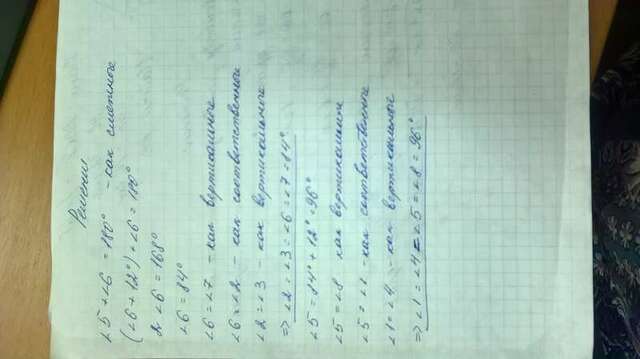 Решение
∠5 + ∠6 = 180° - как смежные
(∠6 + 12°) + ∠6 = 180°
2 ∠6 = 168°
∠6 = 84°
∠6 = ∠7 - как вертикальные
∠6 = ∠2 - как соответственные
∠2 = ∠3 - как вертикальные
⇒ ∠2 = ∠3 = ∠6 = ∠7 = 84°
∠5 = 84° + 12° = 96°
∠5 = ∠8 как вертикальные
∠5 = ∠1 - как соответственные
∠1 = ∠4 - как вертикальные
⇒ ∠1 = ∠4 = ∠5 = ∠8 = 96°